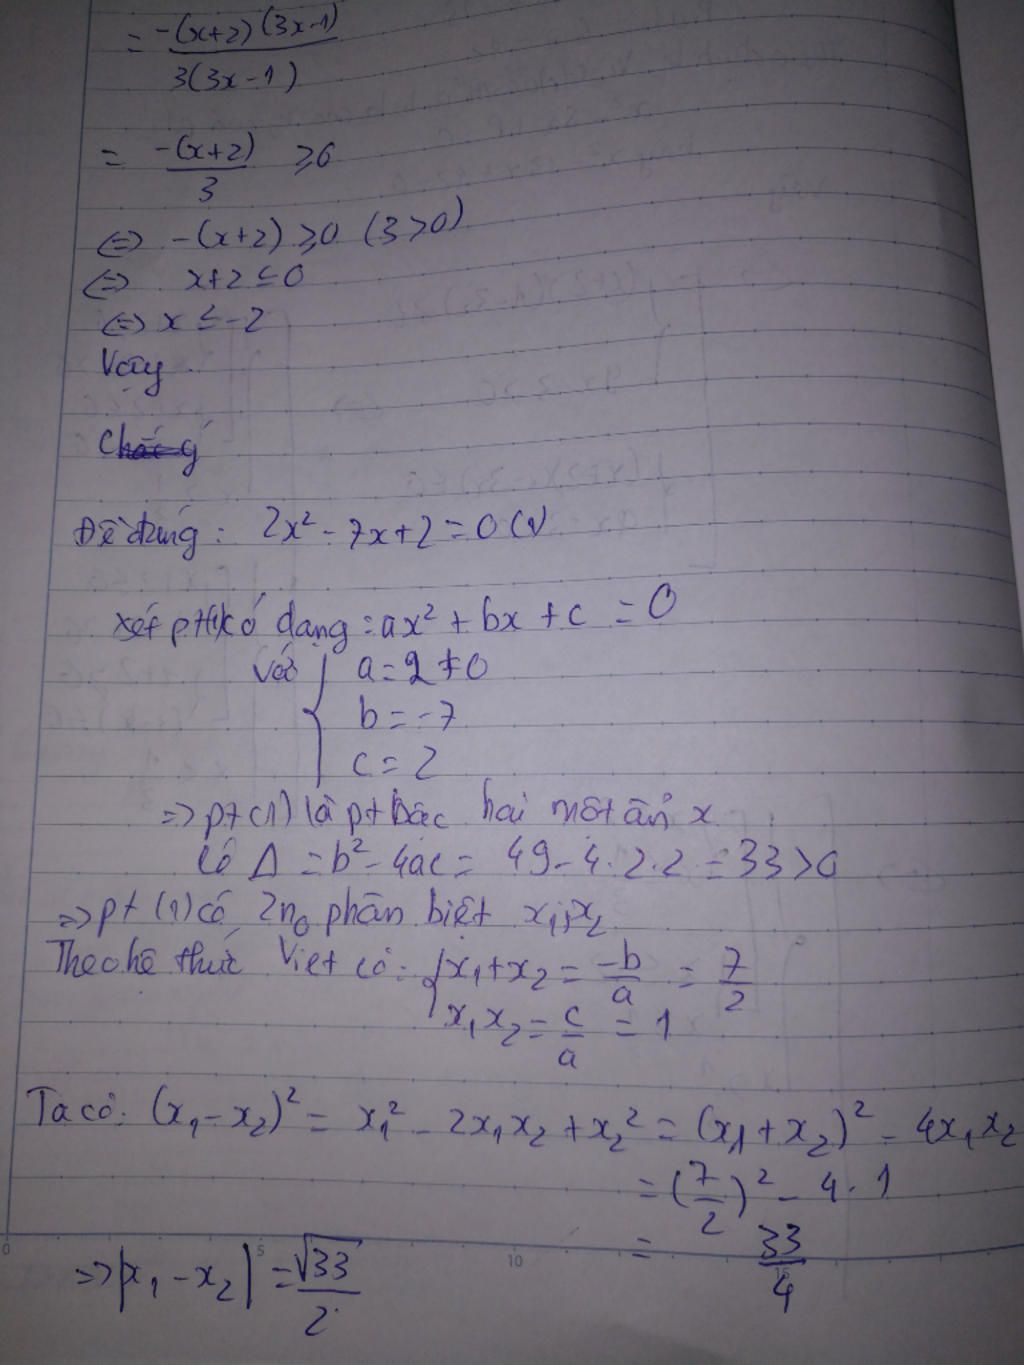 = -(x+2)(3x-1) / 3(3x-1)
= -(x+2) / 3 ≥0
<=> -(x+2) ≥0 (3>0)
<=> x+2 ≤ 0
<=> x ≤ -2
Vậy
Đề đúng: 2x² - 7x + 2 = 0 (1)
xét pt(1)có dạng: ax² + bx + c = 0
với { a = 2 ≠ 0
b = -7
c = 2
=> pt (1) là pt bậc hai một ẩn x
Có Δ = b² - 4ac = 49 - 4.2.2 = 33 > 0
=> pt (1) có 2n₀ phân biệt x₁; x₂
Theo hệ thức Viet có: { x₁ + x₂ = -b/a = 7/2
x₁x₂ = c/a = 1
Ta có: (x₁ - x₂)² = x₁² - 2x₁x₂ + x₂² = (x₁ + x₂)² - 4x₁x₂
= (7/2)² - 4.1
= 33/4
0 5 10 15
=> |x₁ - x₂| = √33 / 2